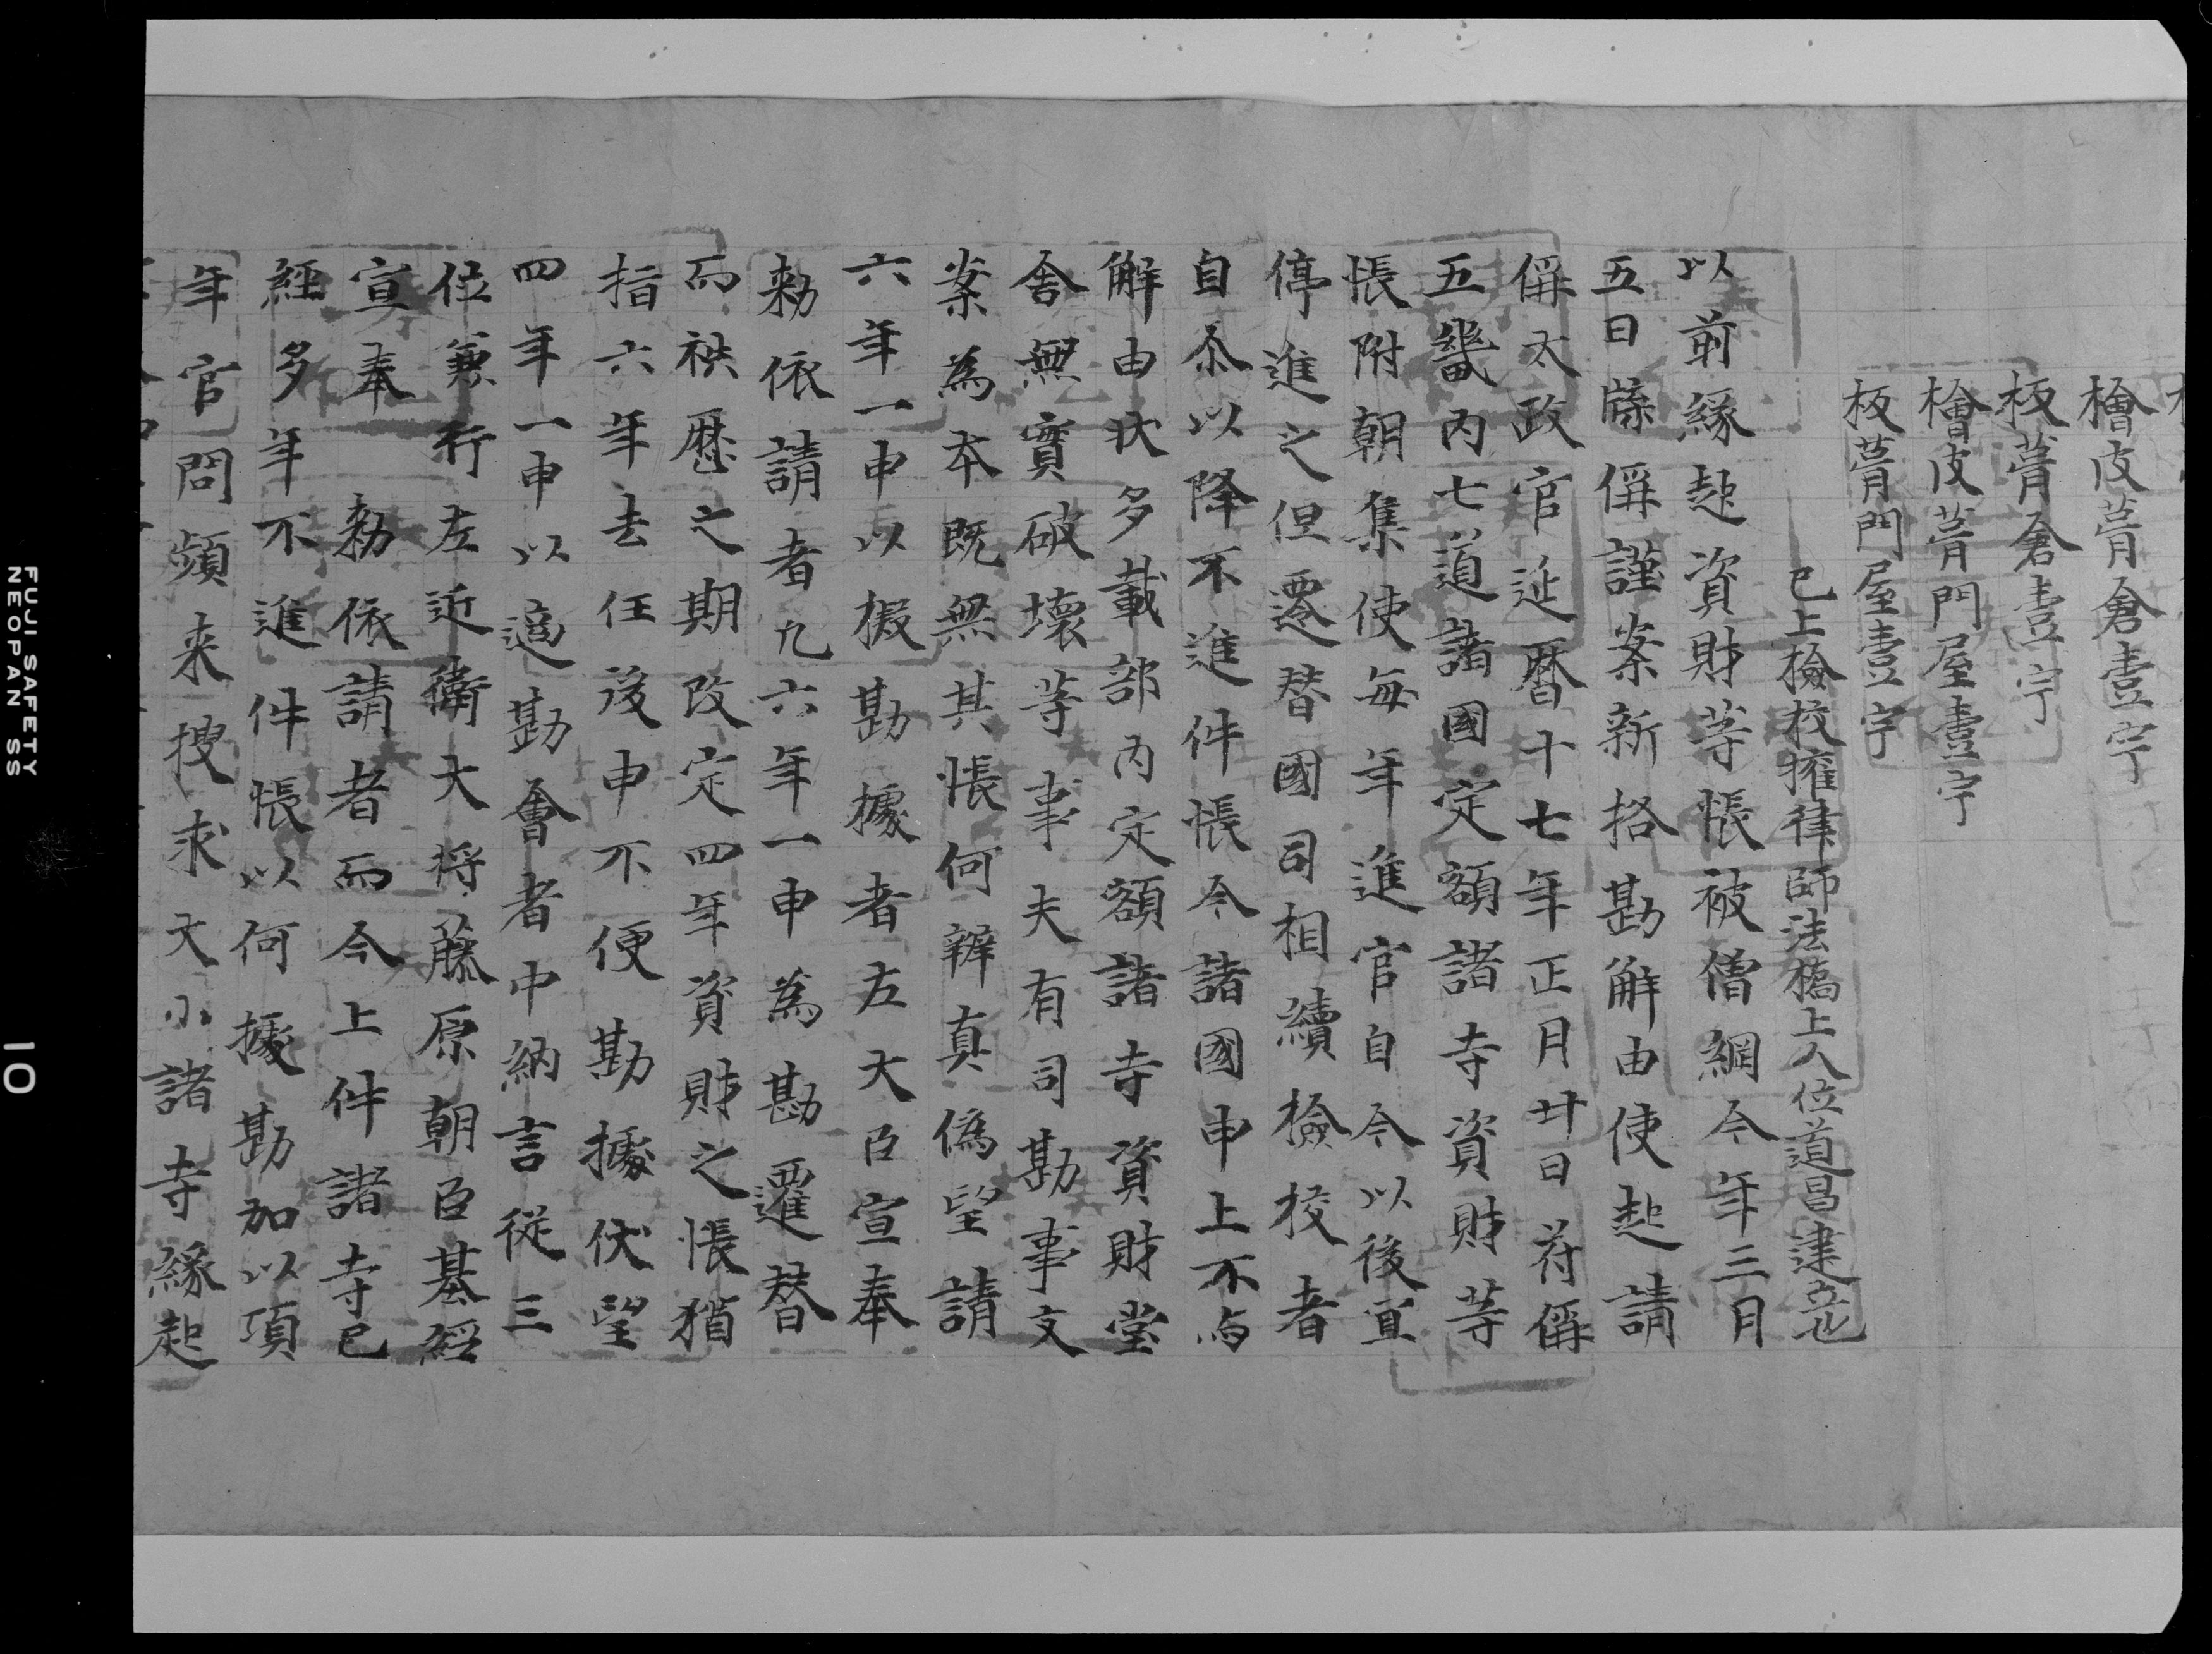 檜皮葺倉壹宇
板葺倉壹宇
檜皮葺門屋壹宇
板葺門屋壹宇
已上檢校權律師法橋上人位道昌建立也
以前縁起資財等帳被僧綱今年三月
五日牒偁謹案新格勘解由使起請
偁太政官延曆十七年正月廿日符偁
五畿內七道諸國定額諸寺資財等
帳附朝集使每年進官自今以後宜
停進之但遷替國司相續檢校者
自尒以降不進件帳今諸國申上不与
解由狀多載部內定額諸寺資財堂
舍無實破壞等事夫有司勘事文
案為本既無其帳何辨真偽望請
六年一申以擬勘據者左大臣宣奉
勅依請者凢六年一申為勘遷替
而袟歷之期改定四年資財之帳猶
指六年去任後申不便勘據伏望
四年一申以適勘會者中納言從三
位兼行左近衛大将藤原朝臣基經
宣奉 勅依請者而今上件諸寺已
經多年不進件帳以何據勘加以項
年官問頻来搜求大小諸寺縁起
FUJI SAFETY
NEOPAN SS
10